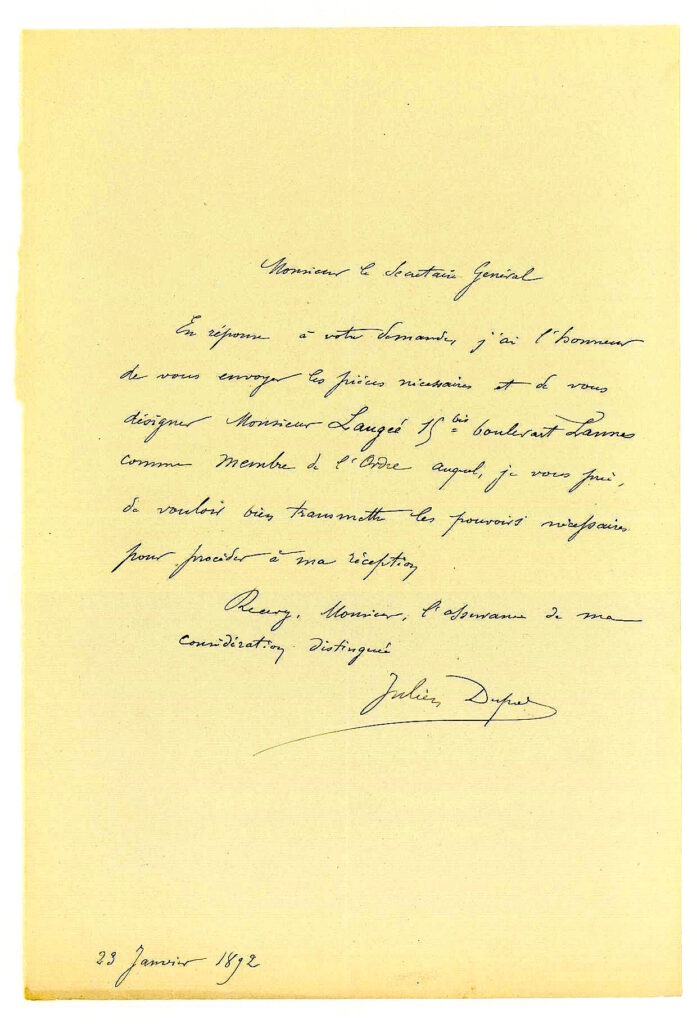 Monsieur le Secretaire Général
En réponse à votre demande, j'ai l'honneur
de vous envoyer les pièces nécessaires et de vous
désigner Monsieur Laugée 15 bis boulevart Lannes
comme membre de l'Ordre auquel, je vous prie,
de vouloir bien transmettre les pouvoirs nécessaires
pour procéder à ma réception
Recevez, Monsieur, l'assurance de ma
considération distinguée
Julien Dupré
23 Janvier 1892